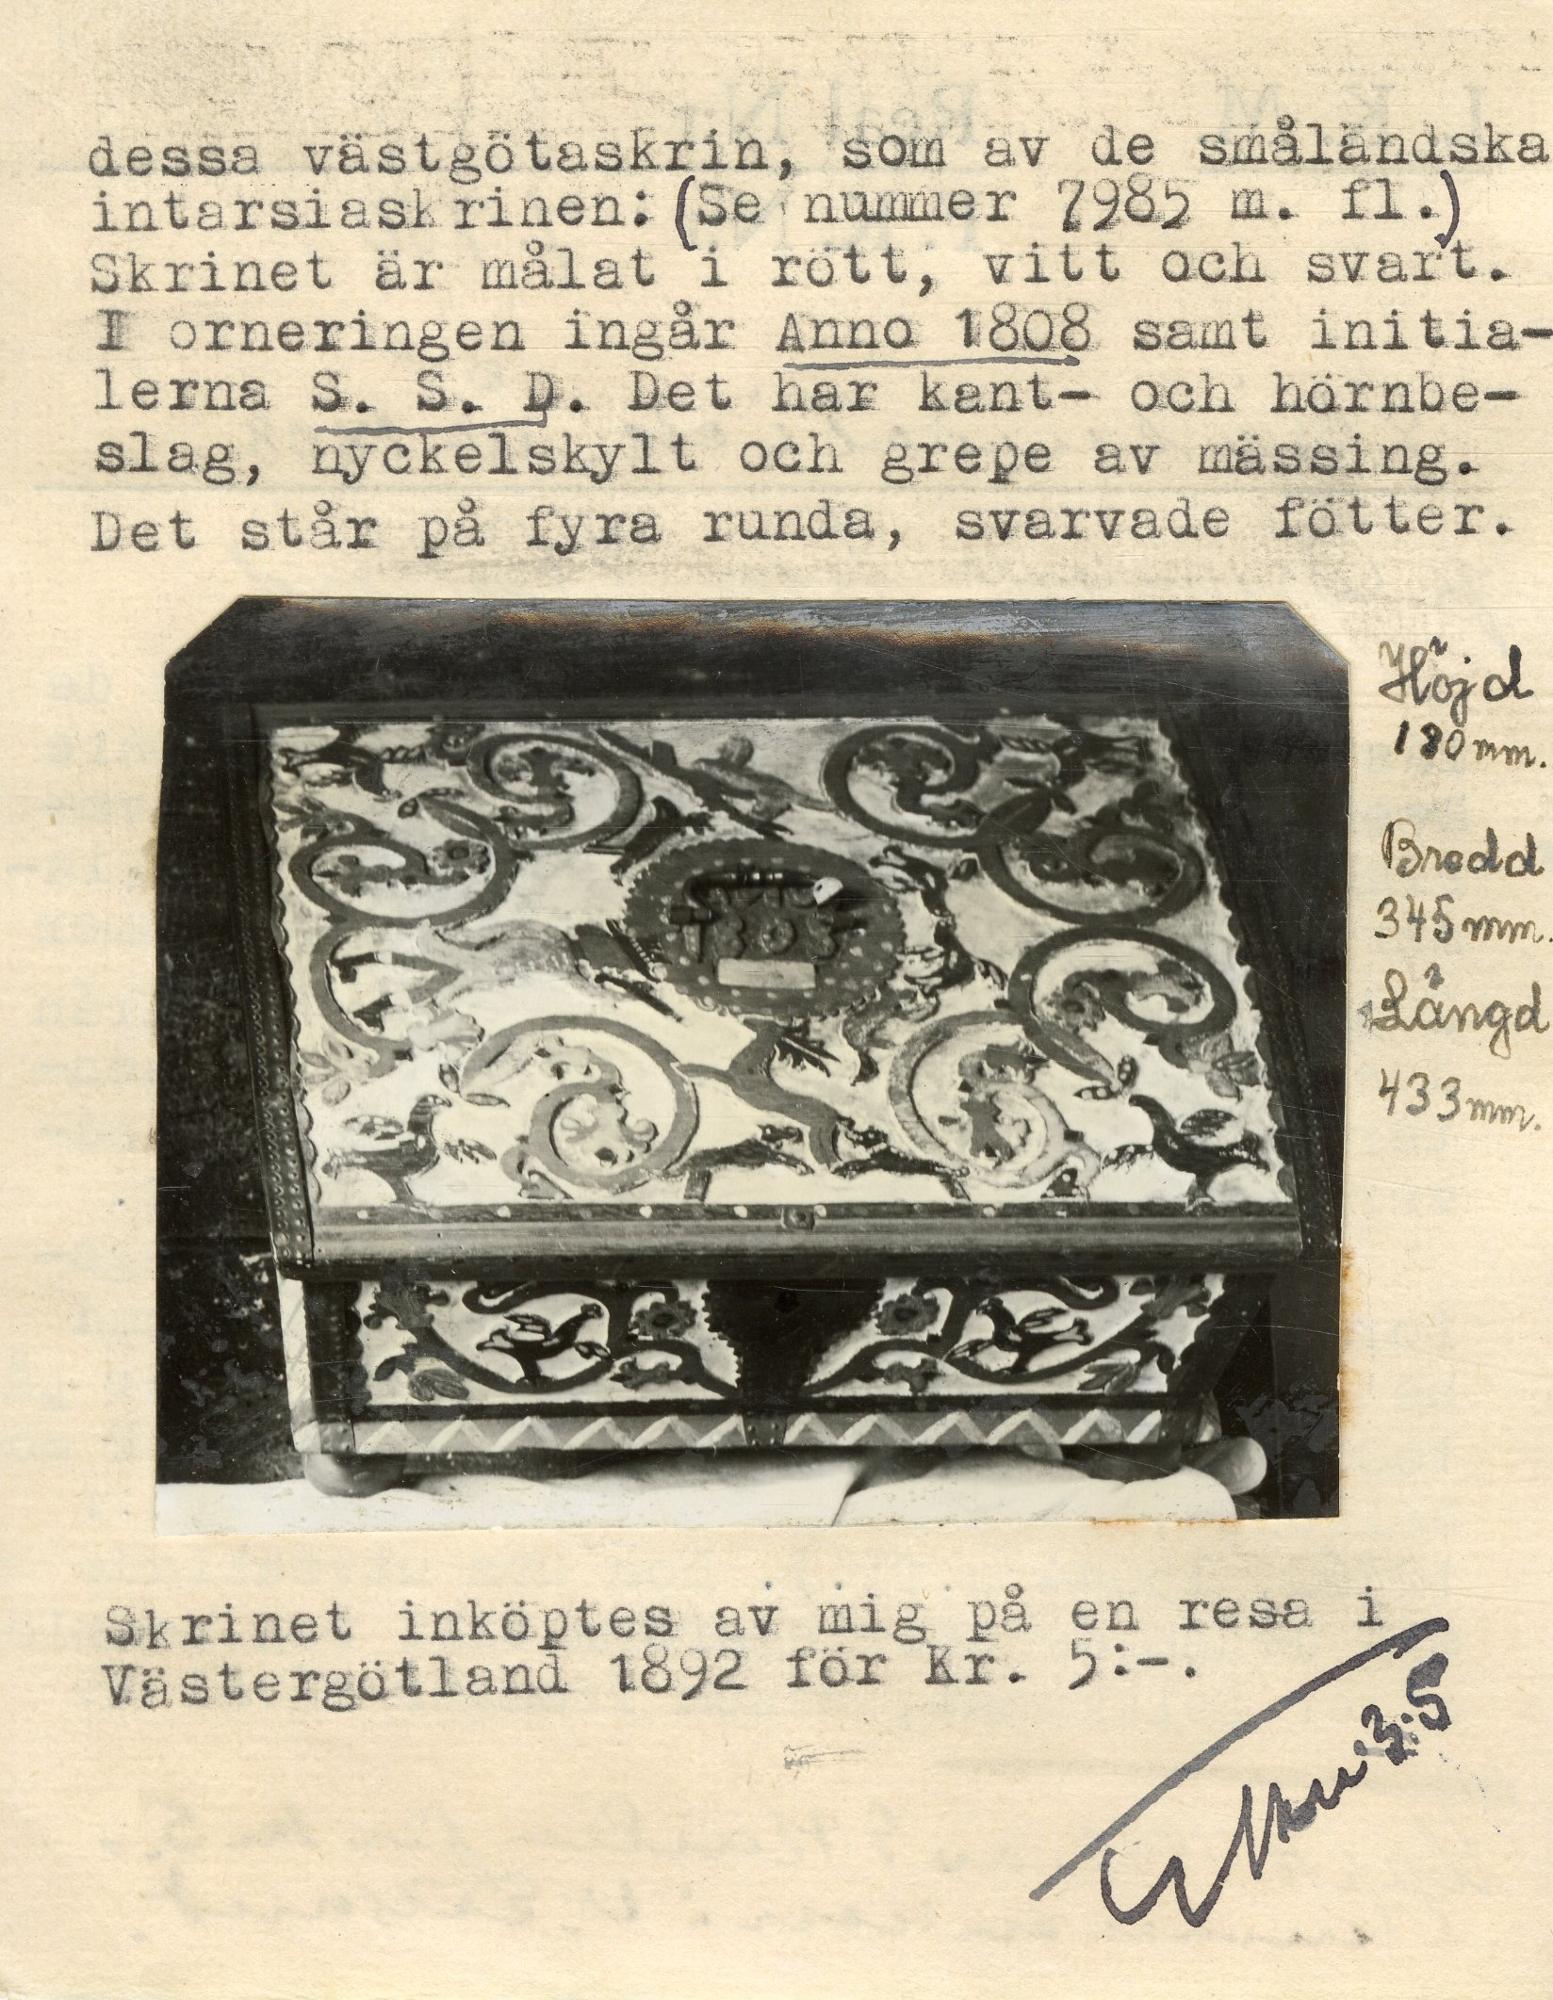 dessa västgötaskrin, som av de småländska
intarsiaskrinen: (Se nummer 7985 m. fl.)
Skrinet är målat i rött, vitt och svart.
I orneringen ingår Anno 1808 samt initia-
lerna S. S. D. Det har kant- och hörnbe-
slag, nyckelskylt och grepe av mässing.
Det står på fyra runda, svarvade fötter.
Höjd
180 mm.
Bredd
345 mm.
Längd
433 mm.
Skrinet inköptes av mig på en resa i
Västergötland 1892 för Kr. 5:-.